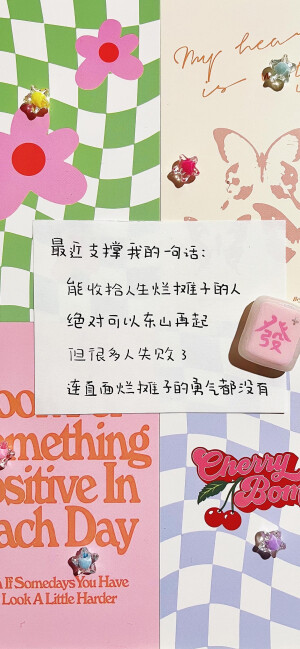 My hea
is
最近支撑我的一句话:
能收拾人生烂摊子的人
绝对可以东山再起
發
但很多人失败了
连直面烂摊子的勇气都没有
omething
ositive In
ach Day
If Somedays You Have
Look A Little Harder
Cherry
Bom